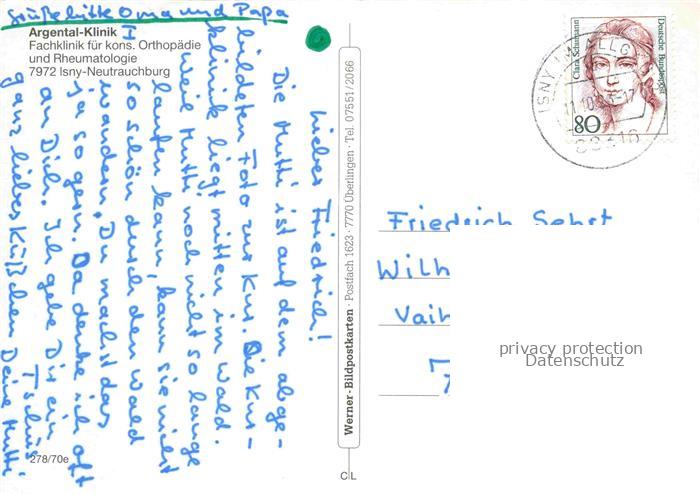 grüße bitte Oma und Papa
Argental-Klinik
Fachklinik für kons. Orthopädie
und Rheumatologie
7972 Isny-Neutrauchburg
Lieber Friedrich!
Die Mutti ist auf dem abge-
bildeten Foto zur Kur. Die Kur-
klinik liegt mitten im Wald.
Weil Mutti noch nicht so lange
laufen kann, kann sie nicht
so schön durch den Wald
wandern. Du machst das
ja so gern. Da denke ich oft
an Dich. Ich gebe Dir ein
ganz liebes Küßchen Deine Mutti
Tschüs
278/70e
Werner-Bildpostkarten · Postfach 1623 · 7770 Überlingen · Tel. 07551/2066
C L
Clara Schumann
Deutsche Bundespost
80
ISNY IM ALLG
88316
Friedrich Sehst
Wilh
Vaih
7
privacy protection
Datenschutz